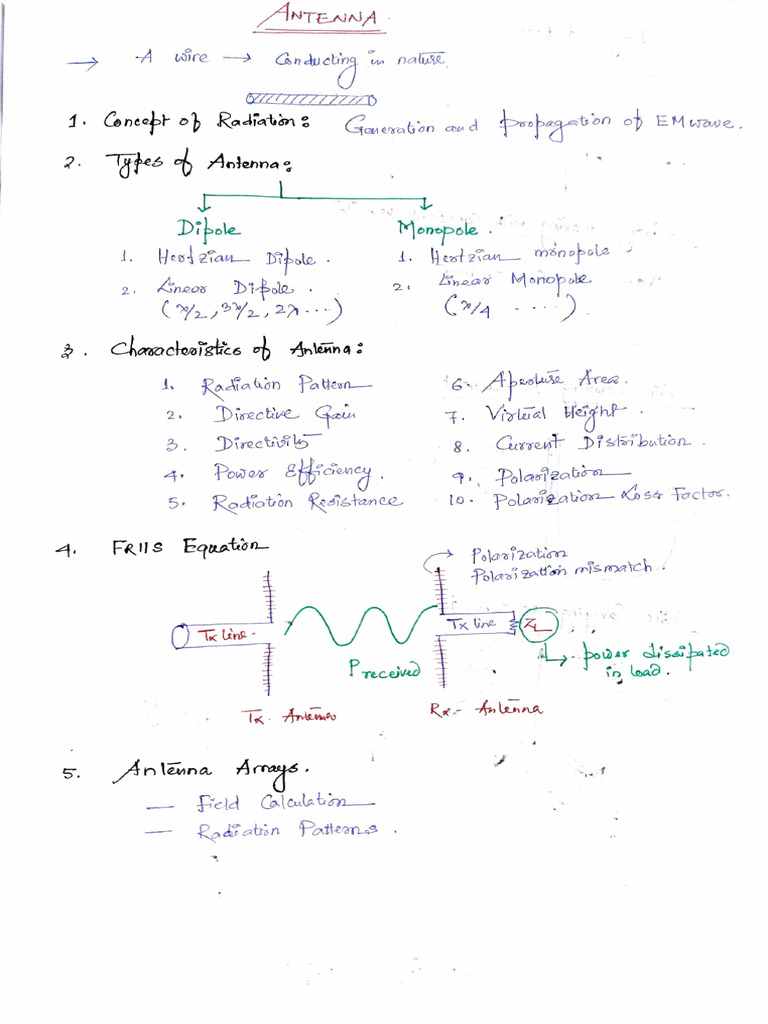 ANTENNA
→ A wire → Conducting in nature.
1. Concept of Radiation: Generation and Propagation of EM wave.
2. Types of Antenna:
Dipole
1. Hertzian Dipole.
2. Linear Dipole.
(λ/2, 3λ/2, 2λ ....)
Monopole.
1. Hertzian monopole
2. Linear Monopole
(λ/4 ....)
3. Characteristics of Antenna:
1. Radiation Pattern
2. Directive Gain
3. Directivity
4. Power Efficiency.
5. Radiation Resistance
6. Aperture Area.
7. Virtual Height.
8. Current Distribution.
9. Polarization
10. Polarization Loss Factor.
4. FRIIS Equation
Polarization
Polarization mismatch.
Tx line.
Tx line
ZL
P received
power dissipated
in load.
Tx. Antenna
Rx. Antenna
5. Antenna Arrays.
— Field Calculation
— Radiation Patterns.